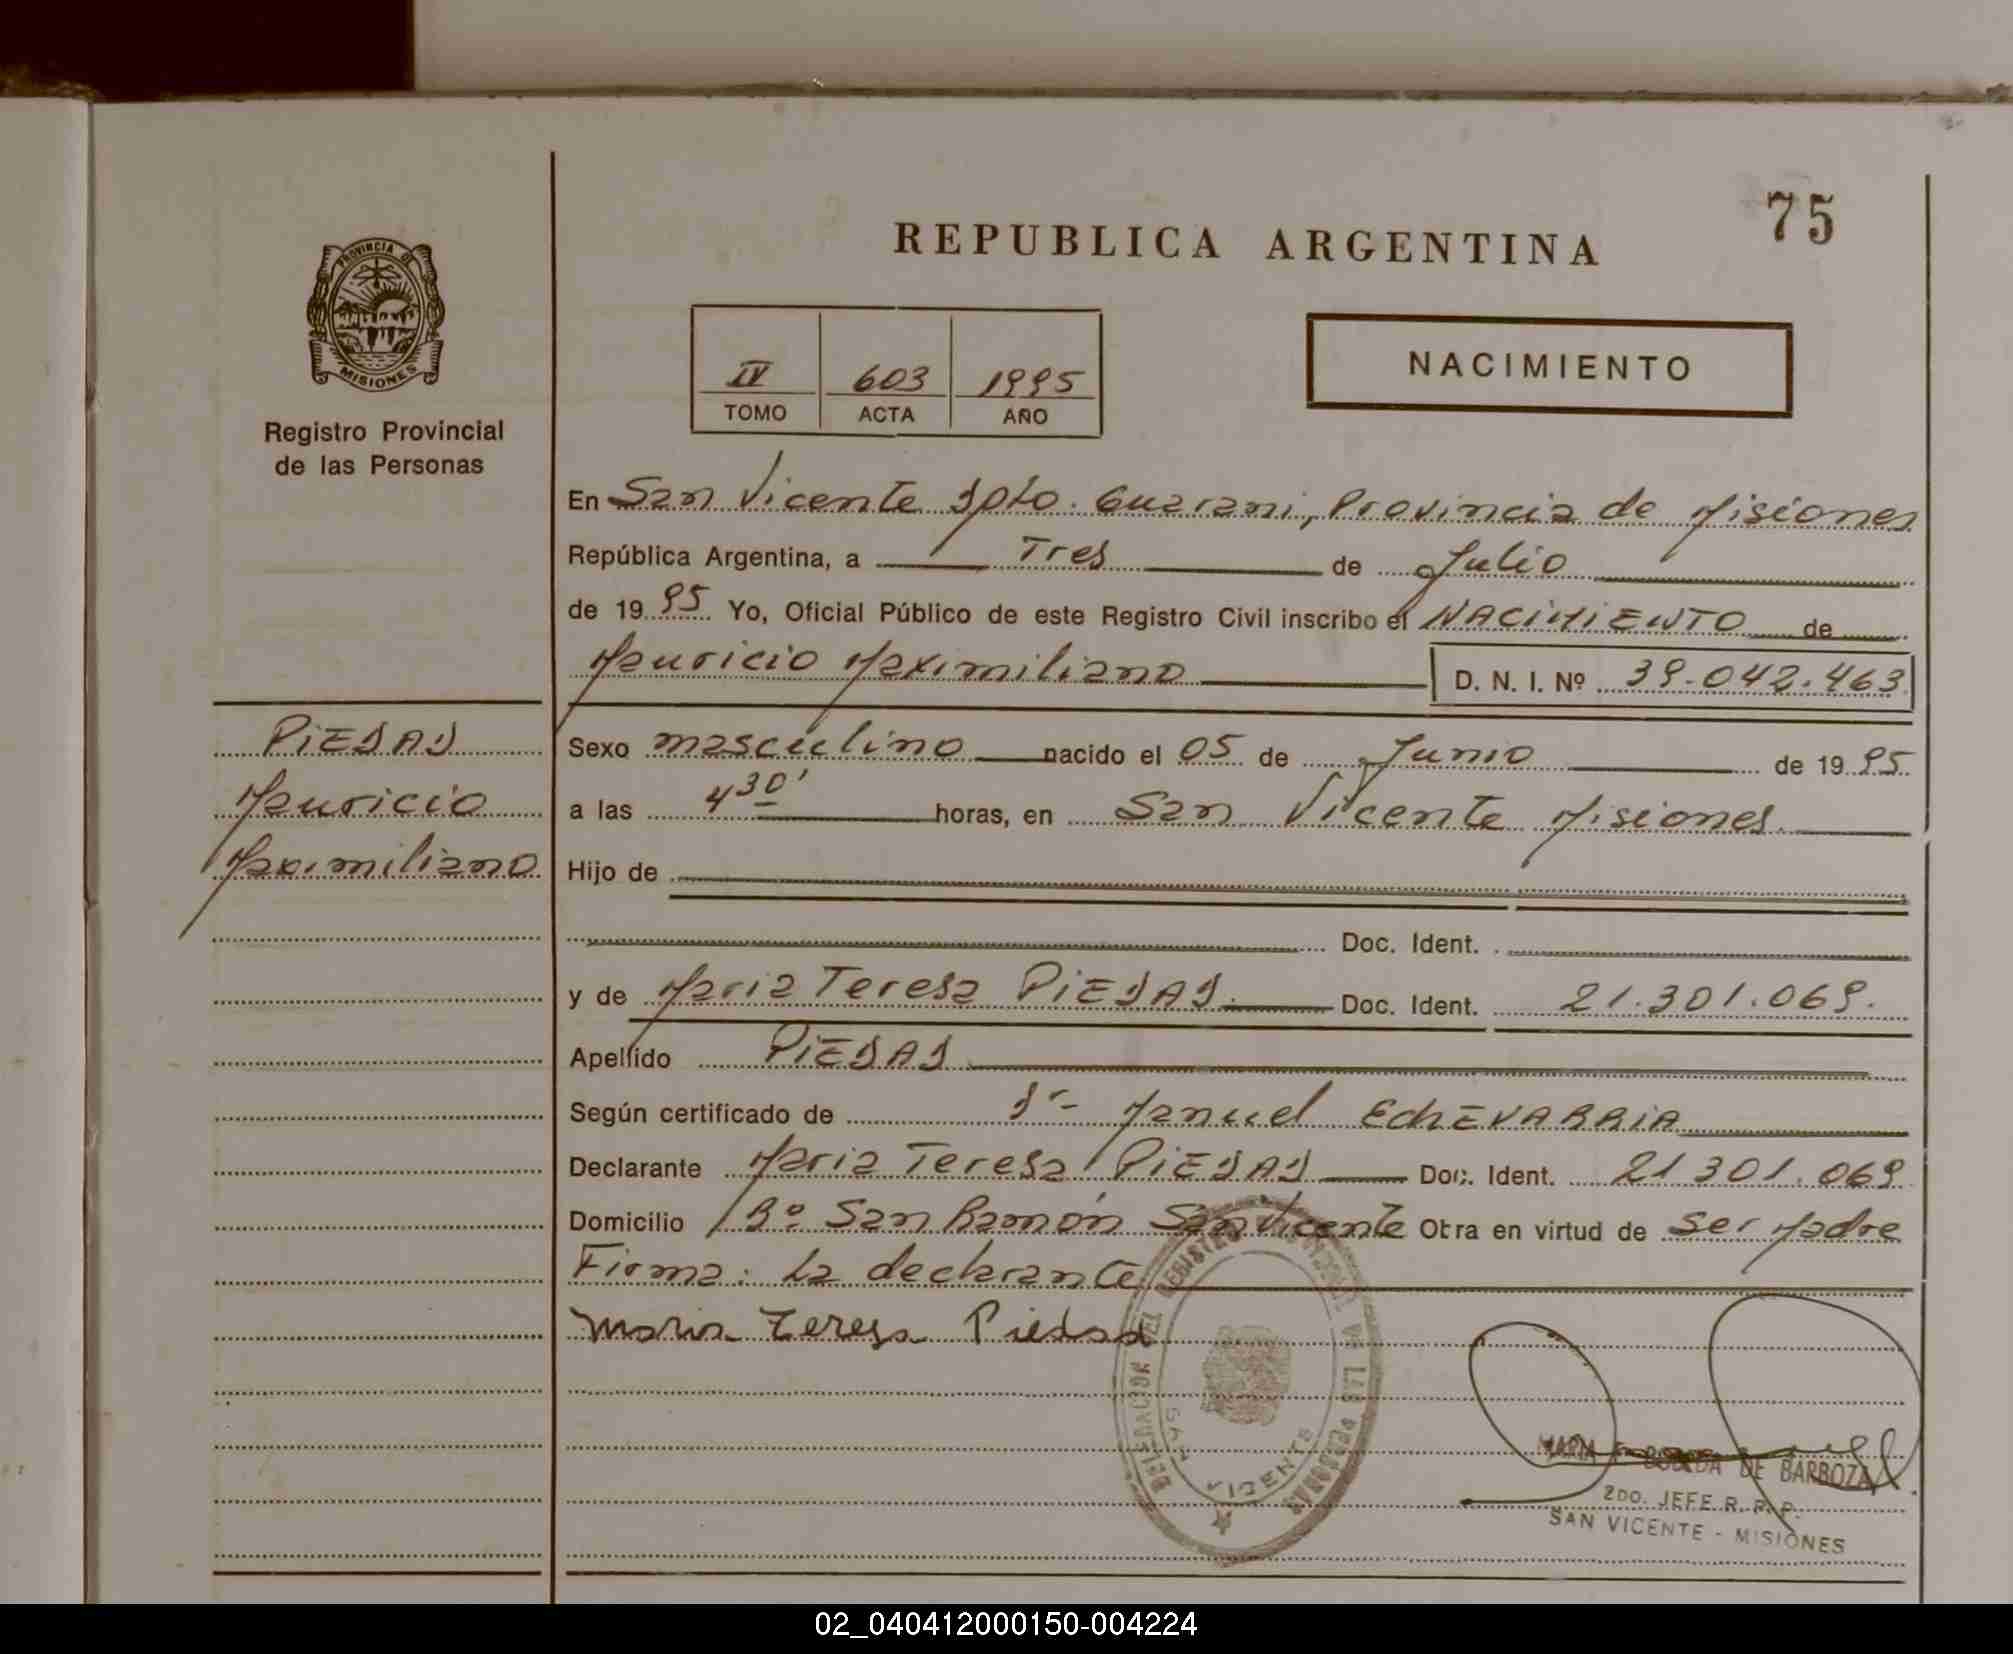 75
REPUBLICA ARGENTINA
PROVINCIA DE
MISIONES
NACIMIENTO
IV 603 1995
TOMO ACTA AÑO
Registro Provincial
de las Personas
En San Vicente Dpto. Guarani, Provincia de Misiones
República Argentina, a Tres de Julio
de 19 95 Yo, Oficial Público de este Registro Civil inscribo el NACIMIENTO de
Mauricio Maximiliano D. N. I. Nº 39.042.463
PIEDAD
Mauricio
Maximiliano
Sexo masculino nacido el 05 de Junio de 19 95
a las 4 30' horas, en San Vicente Misiones
Hijo de
Doc. Ident.
y de Maria Teresa PIEDAD Doc. Ident. 21.301.069.
Apellido PIEDAD
Según certificado de Dr Manuel EchEVARRIA
Declarante Maria Teresa PIEDAD Doc. Ident. 21 301.069
Domicilio Bº San Ramón San Vicente Obra en virtud de ser Madre
Firma: La declarante
Maria Teresa Piedad
DELEGACION DEL REGISTRO PROVINCIAL DE LAS PERSONAS
SAN VICENTE
MARIA DE BARBOZA
2DO. JEFE R. P. P.
SAN VICENTE - MISIONES
02_040412000150-004224